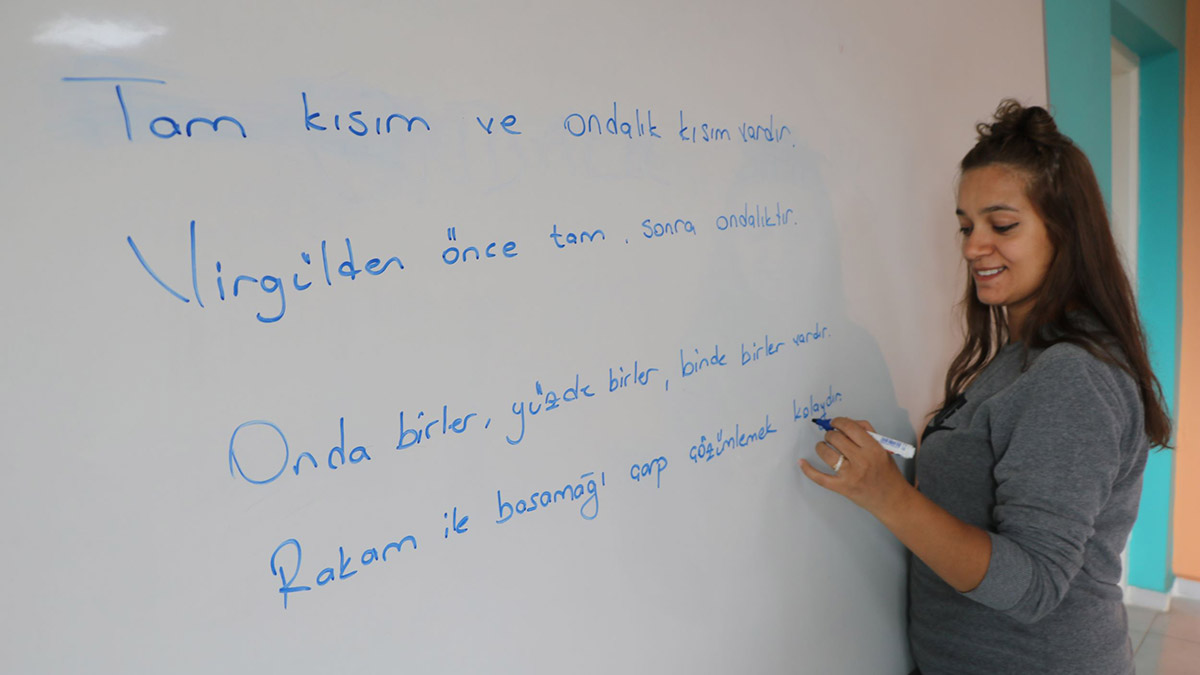 Tam kısım ve ondalık kısım vardır.
Virgülden önce tam, sonra ondalıktır.
Onda birler, yüzde birler, binde birler vardır.
Rakam ile basamağı çarp çözümlemek kolaydır.